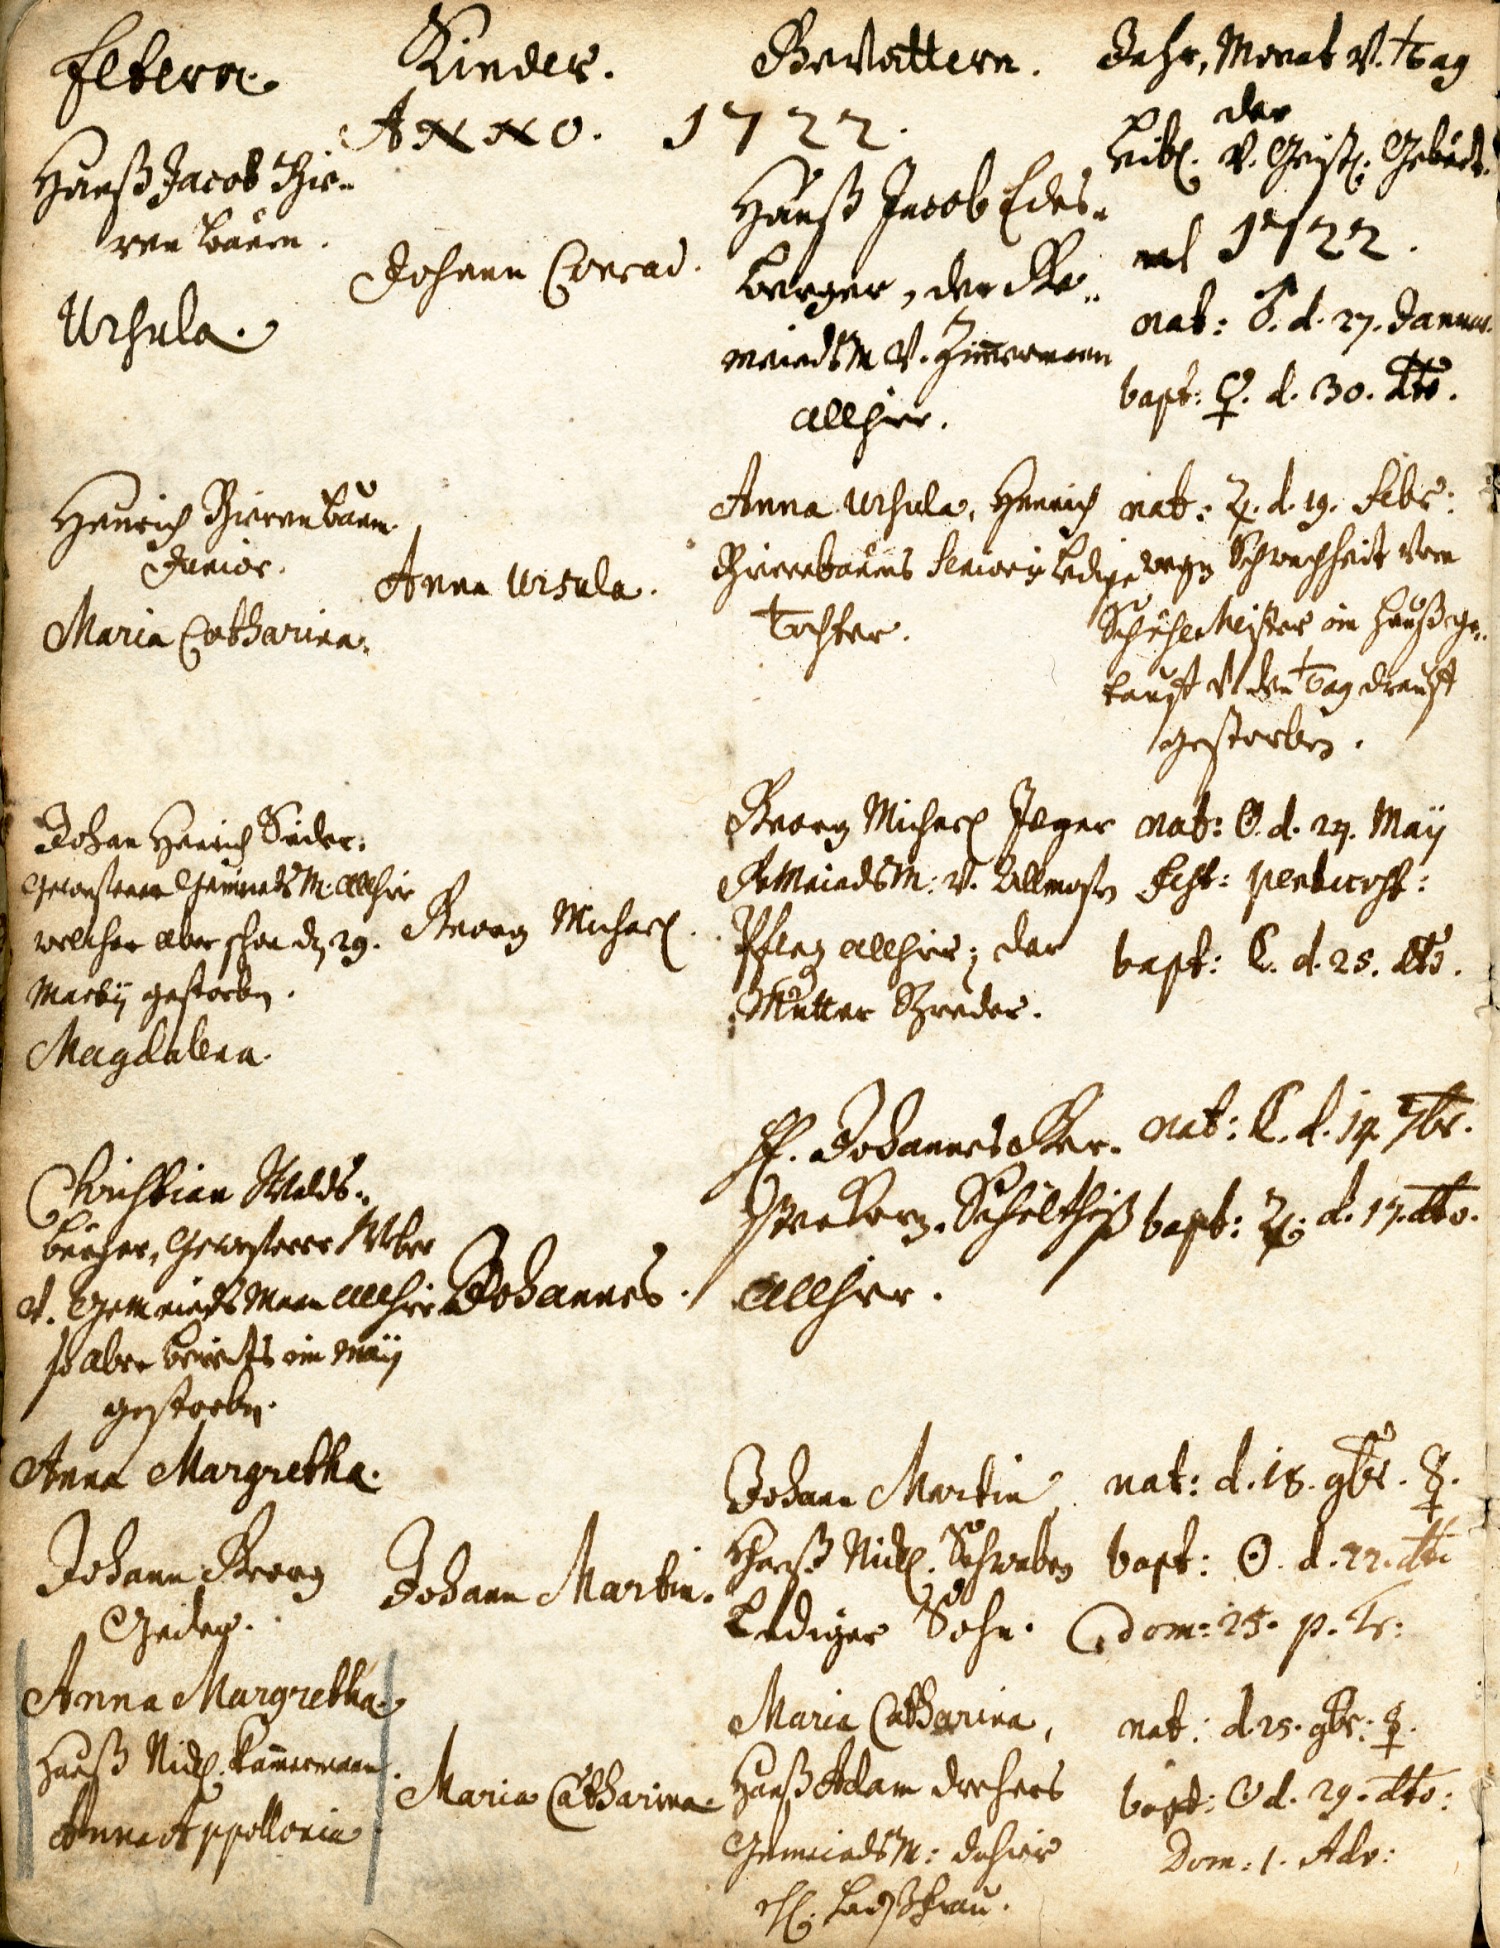 Eltern.
Kinder.
Gevattern.
Jahr, Monat v. Tag
der
Leibl. v. Geistl. Gebuhrt.
Anno. 1722.
Hanß Jacob Bir-
renbaum.
Ursula.
Johann Conrad.
Hanß Jacob Edes-
berger, der Ge-
meindsM v. Zimmermann
allhier.
1722.
nat: ♂. d. 27. Januar.
bapt: ♀. d. 30. dto.
Henrich Bierenbaum
Junior.
Maria Catharina.
Anna Ursula.
Anna Ursula, Henrich
Bierenbaums Senioris ledige
Tochter.
nat: ♃. d. 19. Febr:
wegen Schwachheit vom
SchuhlMeister im Hauß ge-
taufft v den Tag drauff
gestorben.
Johan Henrich
gewesener GemeindsM. allhier
welcher aber schon d. 29.
Martij gestorben.
Magdalena.
Georg Michael.
Georg Michael Jeger
GemeindsM: v. Allmosen
Pfleg allhier; der
Mutter Bruder.
nat: ☉. d. 24. Maij
Fest: pentecost:
bapt: ☾. d. 25. dto.
Christian Walds-
burger, gewesener Weber
v. Gemeindsmann allhier
so aber bereits im Maij
gestorben.
Anna Margretha.
Johannes.
H. Johannes
Schultheiß
allhier.
nat: ☾. d. 14. 7br.
bapt: ♃. d. 17. dto.
Johann Georg
Anna Margretha.
Johann Martin.
Johann Martin,
Hanß Nickl. Schwaben
Lediger Sohn.
nat: d. 18. 9br. ☿.
bapt: ☉. d. 22. dto
dom: 25. p. Tr:
Hanß Nickl. Kammermann.
Anna Appollonia
Maria Catharina.
Maria Catharina,
Hanß Adam Drehers
GemeindsM: dahier
ehl. Haußfrau.
nat: d. 25. 9br: ☿.
bapt: ☉ d. 29. dto:
Dom: 1. Adv: